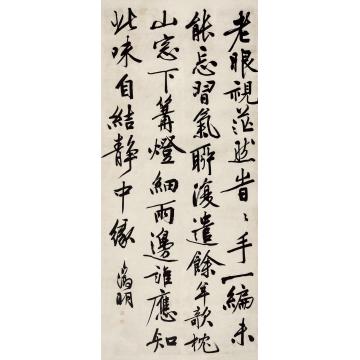 老眼視茫然旹〻手一編未
能忘習氣聊復遣餘年欹枕
山窓下篝燈細雨邊誰應知
此味自結靜中緣 徵明